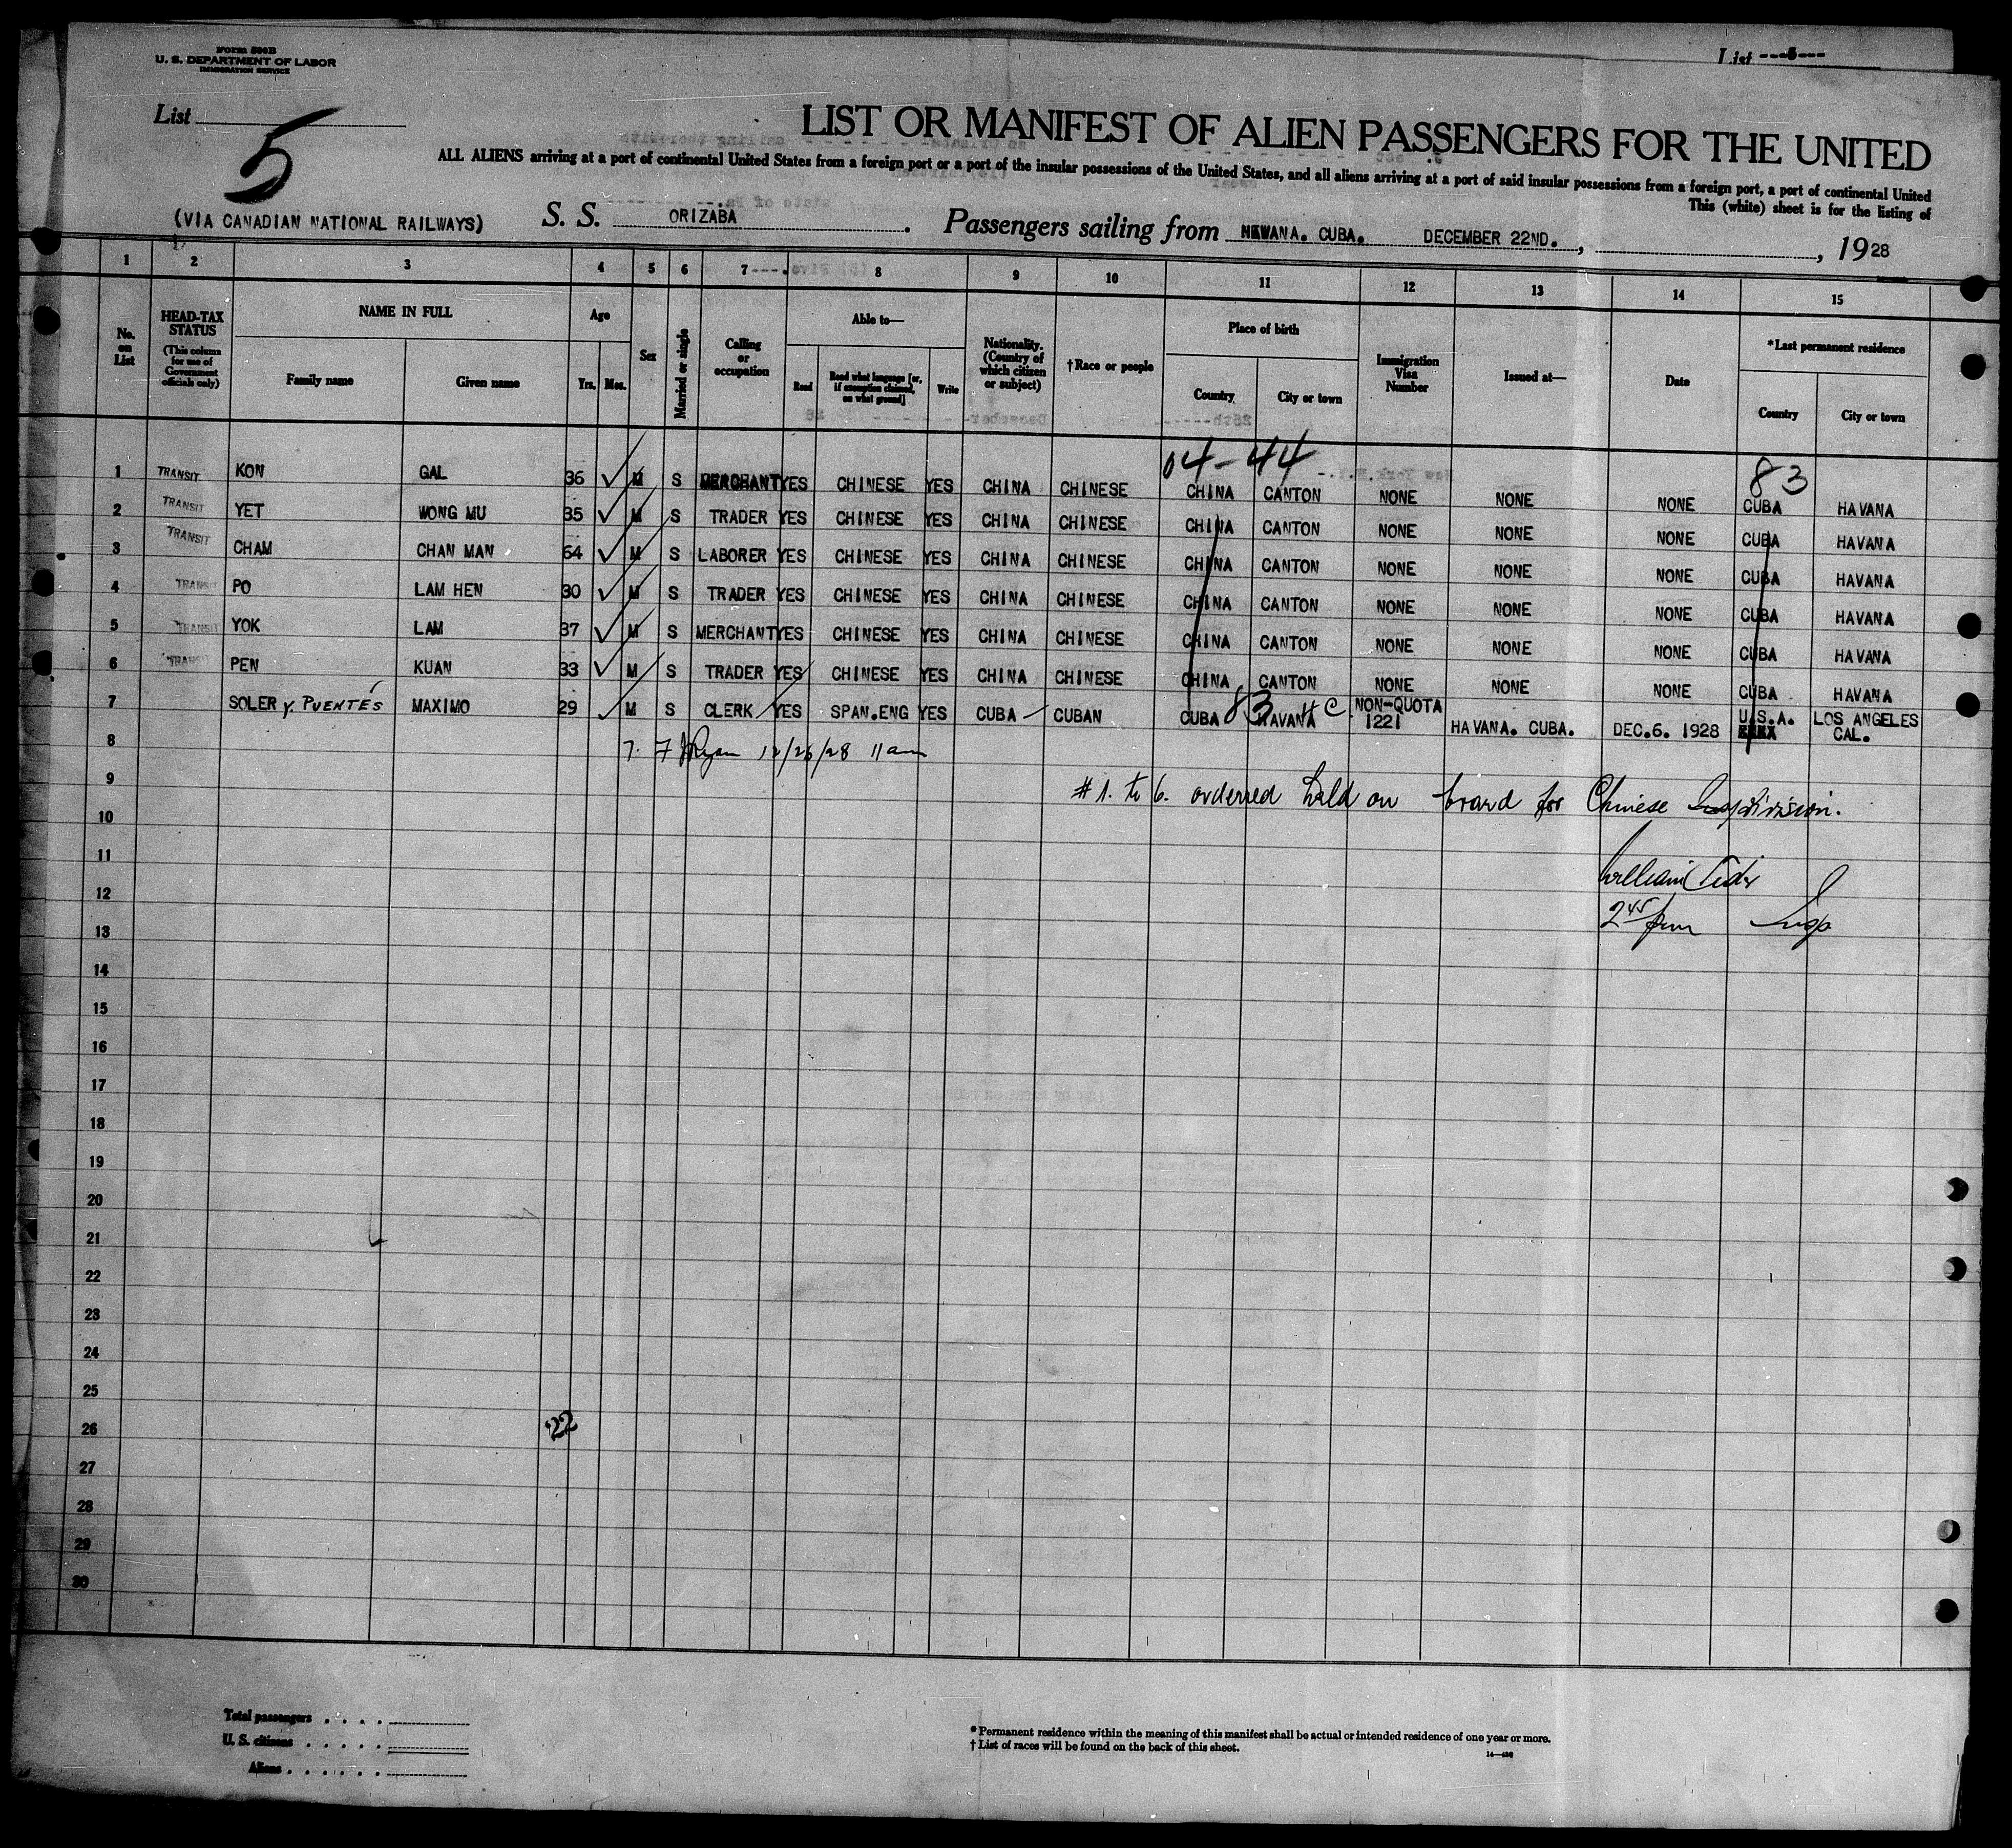 Form 500B
U. S. DEPARTMENT OF LABOR
IMMIGRATION SERVICE
List ---5---
List 5
LIST OR MANIFEST OF ALIEN PASSENGERS FOR THE UNITED
ALL ALIENS arriving at a port of continental United States from a foreign port or a port of the insular possessions of the United States, and all aliens arriving at a port of said insular possessions from a foreign port, a port of continental United
This (white) sheet is for the listing of
(VIA CANADIAN NATIONAL RAILWAYS) S. S. ORIZABA. Passengers sailing from HAVANA. CUBA. DECEMBER 22ND., , 1928
1 2 3 4 5 6 7 8 9 10 11 12 13 14 15
No. on List
HEAD-TAX STATUS
(This column for use of Government officials only)
NAME IN FULL
Family name Given name
Age
Yrs. Mos.
Sex
Married or single
Calling or occupation
Able to—
Read Read what language [or, if exemption claimed, on what ground] Write
Nationality. (Country of which citizen or subject)
†Race or people
Place of birth
Country City or town
Immigration Visa Number
Issued at—
Date
*Last permanent residence
Country City or town
04-44 83
1 TRANSIT KON GAL 36 M S MERCHANT YES CHINESE YES CHINA CHINESE CHINA CANTON NONE NONE NONE CUBA HAVANA
2 TRANSIT YET WONG MU 35 M S TRADER YES CHINESE YES CHINA CHINESE CHINA CANTON NONE NONE NONE CUBA HAVANA
3 TRANSIT CHAM CHAN MAN 64 M S LABORER YES CHINESE YES CHINA CHINESE CHINA CANTON NONE NONE NONE CUBA HAVANA
4 TRANSIT PO LAM HEN 30 M S TRADER YES CHINESE YES CHINA CHINESE CHINA CANTON NONE NONE NONE CUBA HAVANA
5 TRANSIT YOK LAM 37 M S MERCHANT YES CHINESE YES CHINA CHINESE CHINA CANTON NONE NONE NONE CUBA HAVANA
6 TRANSIT PEN KUAN 33 M S TRADER YES CHINESE YES CHINA CHINESE CHINA CANTON NONE NONE NONE CUBA HAVANA
7 SOLER y. PUENTÉS MAXIMO 29 M S CLERK YES SPAN.ENG YES CUBA CUBAN CUBA 83 HAVANA NON-QUOTA 1221 HAVANA. CUBA. DEC.6. 1928 U.S.A. LOS ANGELES CAL.
8 7. Ryan 12/26/28 11 am
9 #1. to 6. ordered held on board for Chinese division.
10
11 William
12 2 45 pm Insp
13
14
15
16
17
18
19
20
21
22
23
24
25
26 22
27
28
29
30
Total passengers . . . .
U. S. citizens . . . . .
Aliens . . . . . .
* Permanent residence within the meaning of this manifest shall be actual or intended residence of one year or more.
† List of races will be found on the back of this sheet.